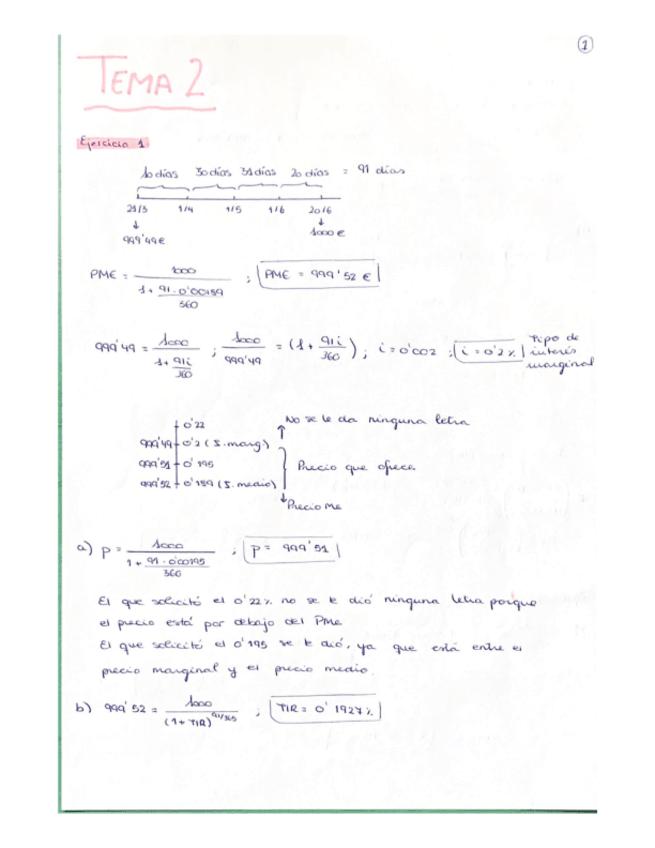 1
TEMA 2
Ejercicio 1
10 días 30 días 31 días 20 días = 91 días
21/3 1/4 1/5 1/6 20/6
999'49€ 1000 €
PME = 1000 / (1 + 91·0'00189 / 360) ; PME = 999'52 €
999'49 = 1000 / (1 + 91i / 360) ; 1000 / 999'49 = (1 + 91i / 360) ; i = 0'002 ; i = 0'2% Tipo de interés marginal
0'22 No se le da ninguna letra
999'49 0'2 (I. marg)
999'51 0'195 Precio que ofrece.
999'52 0'189 (I. medio)
Precio Me
a) P = 1000 / (1 + 91·0'00195 / 360) ; P = 999'51
El que solicitó el 0'22% no se le dió ninguna letra porque
el precio está por debajo del PMe
El que solicitó el 0'195 se le dió, ya que está entre el
precio marginal y el precio medio.
b) 999'52 = 1000 / (1 + TIR)^91/365 ; TIR = 0'1927%